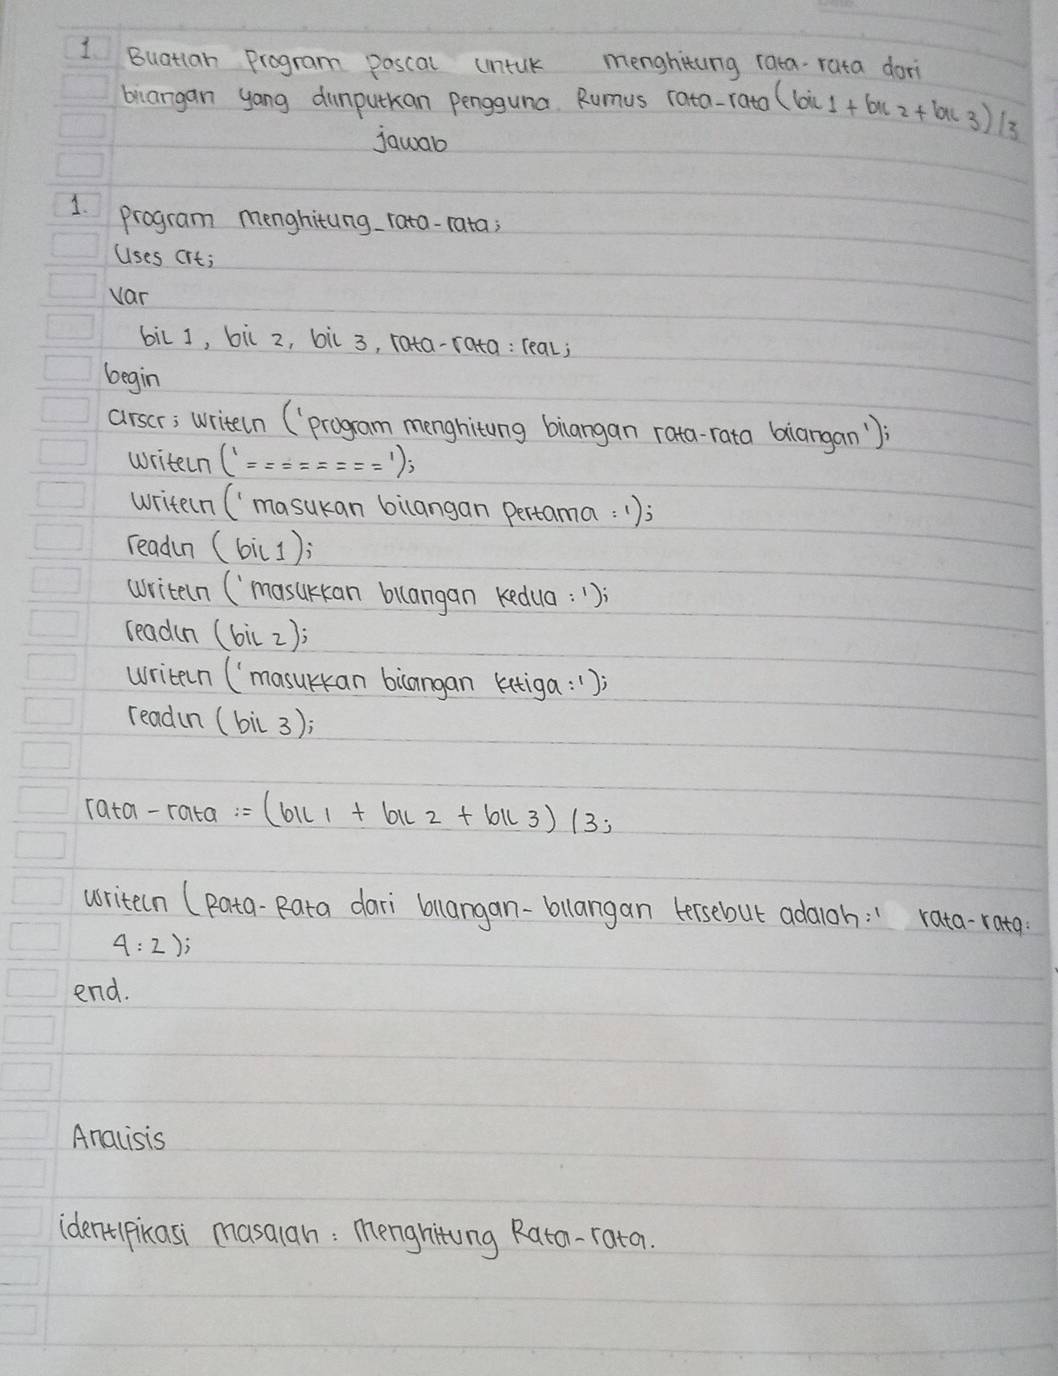 1. Buatlah Program Pascal untuk menghitung rata-rata dari
bilangan yang diinputkan pengguna. Rumus rata-rata (bil 1 + bil 2 + bil 3) / 3
jawab
1. program menghitung_rata-rata;
Uses crt;
var
bil 1, bil 2, bil 3, rata-rata : real;
begin
clrscr; writeln ('program menghitung bilangan rata-rata bilangan');
writeln ('========');
writeln ('masukan bilangan pertama :');
readln (bil 1);
writeln ('masukkan bilangan kedua :');
readln (bil 2);
writeln ('masukkan bilangan ketiga :');
readln (bil 3);
rata-rata := (bil 1 + bil 2 + bil 3) / 3;
writeln (Rata-Rata dari bilangan-bilangan tersebut adalah :' rata-rata:
4 : 2);
end.
Analisis
identipikasi masalah : Menghitung Rata-rata.